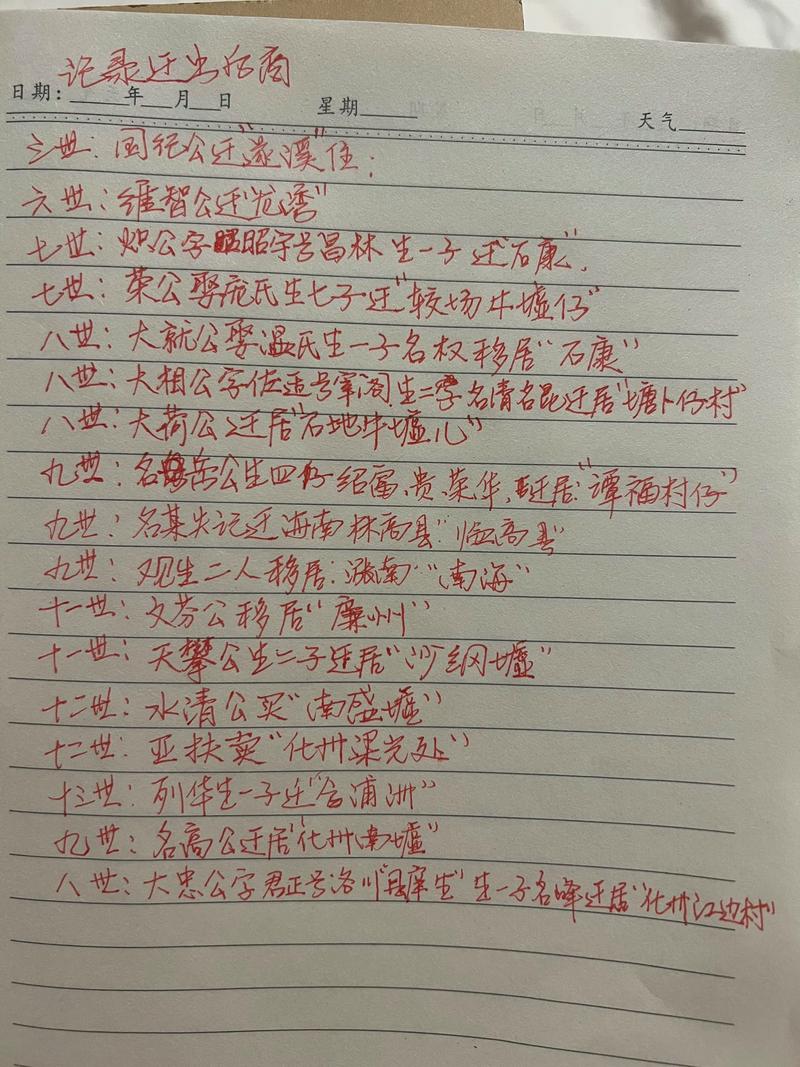 记录迁出后裔
日期：____年__月__日 星期____ 天气____
三世：国纪公迁"遂溪"住；
六世：维智公迁"龙湾"
七世：炽公字昭宇号昌林生一子迁"石康"．
七世：荣公娶庞氏生七子迁"较场牛墟仔"
八世：大就公娶温氏生一子名权移居"石康"
八世：大相公字佐 号 阁生二子名清名昆迁居"塘卜仔村"
八世：大荷公迁居"石地牛墟儿"
九世：名岳公生四仔绍富、贵、荣、华，迁居："谭福村仔"
九世：名某失记迁海南林高县"临高县"
九世：观生二人移居：海南"南海"
十一世：文芬公移居"廉州"
十一世：天攀公生二子迁居"沙纲墟"
十二世：水清公买"南盛墟"
十二世：亚扶卖"化州梁光处"
十三世：列华生一子迁"合浦洲"
九世：名高公迁居"化州南墟"
八世：大忠公字君正号洛川" 庠生"生一子名峰迁居"化州江边村"